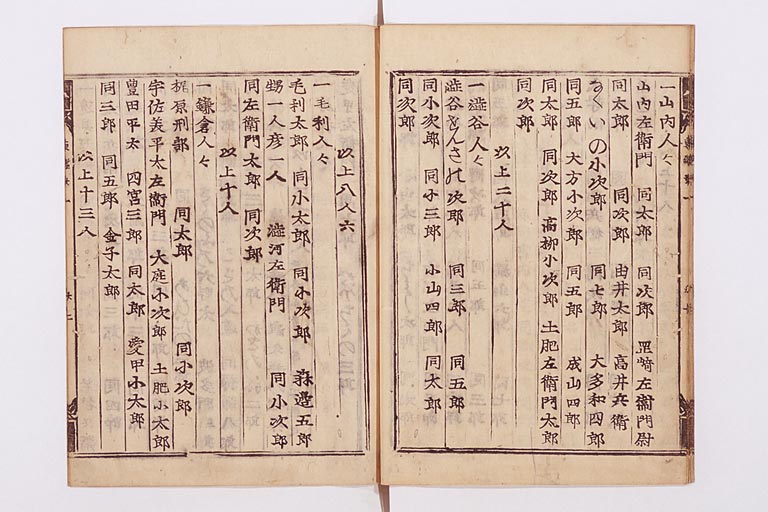 一山内人々
山内左衛門 同太郎 同次郎 罡﨑左衛門尉
同太郎 同次郎 由井太郎 高井兵衛
ちくいの小次郎 同七郎 大多和四郎
同五郎 大方小次郎 同五郎 成山四郎
同太郎 同次郎 高柳小次郎 土肥左衛門太郎
同次郎
以上二十人
一澁谷人々
澁谷をんさの次郎 同三郎 同五郎
同小次郎 同小三郎 小山四郎 同太郎
同次郎
以上八人六
一毛利人々
毛利太郎 同小太郎 同小次郎 森澄五郎
甥一人彦一人 澁河左衛門 同小次郎
同左衛門太郎 同次郎
以上十人
一鎌倉人々
梶原刑部 同太郎 同小次郎
宇佐義平太左衛門 大庭小次郎 土肥小太郎
豊田平太 四宮三郎 同太郎 愛甲小太郎
同三郎 同五郎 金子太郎
以上十三人